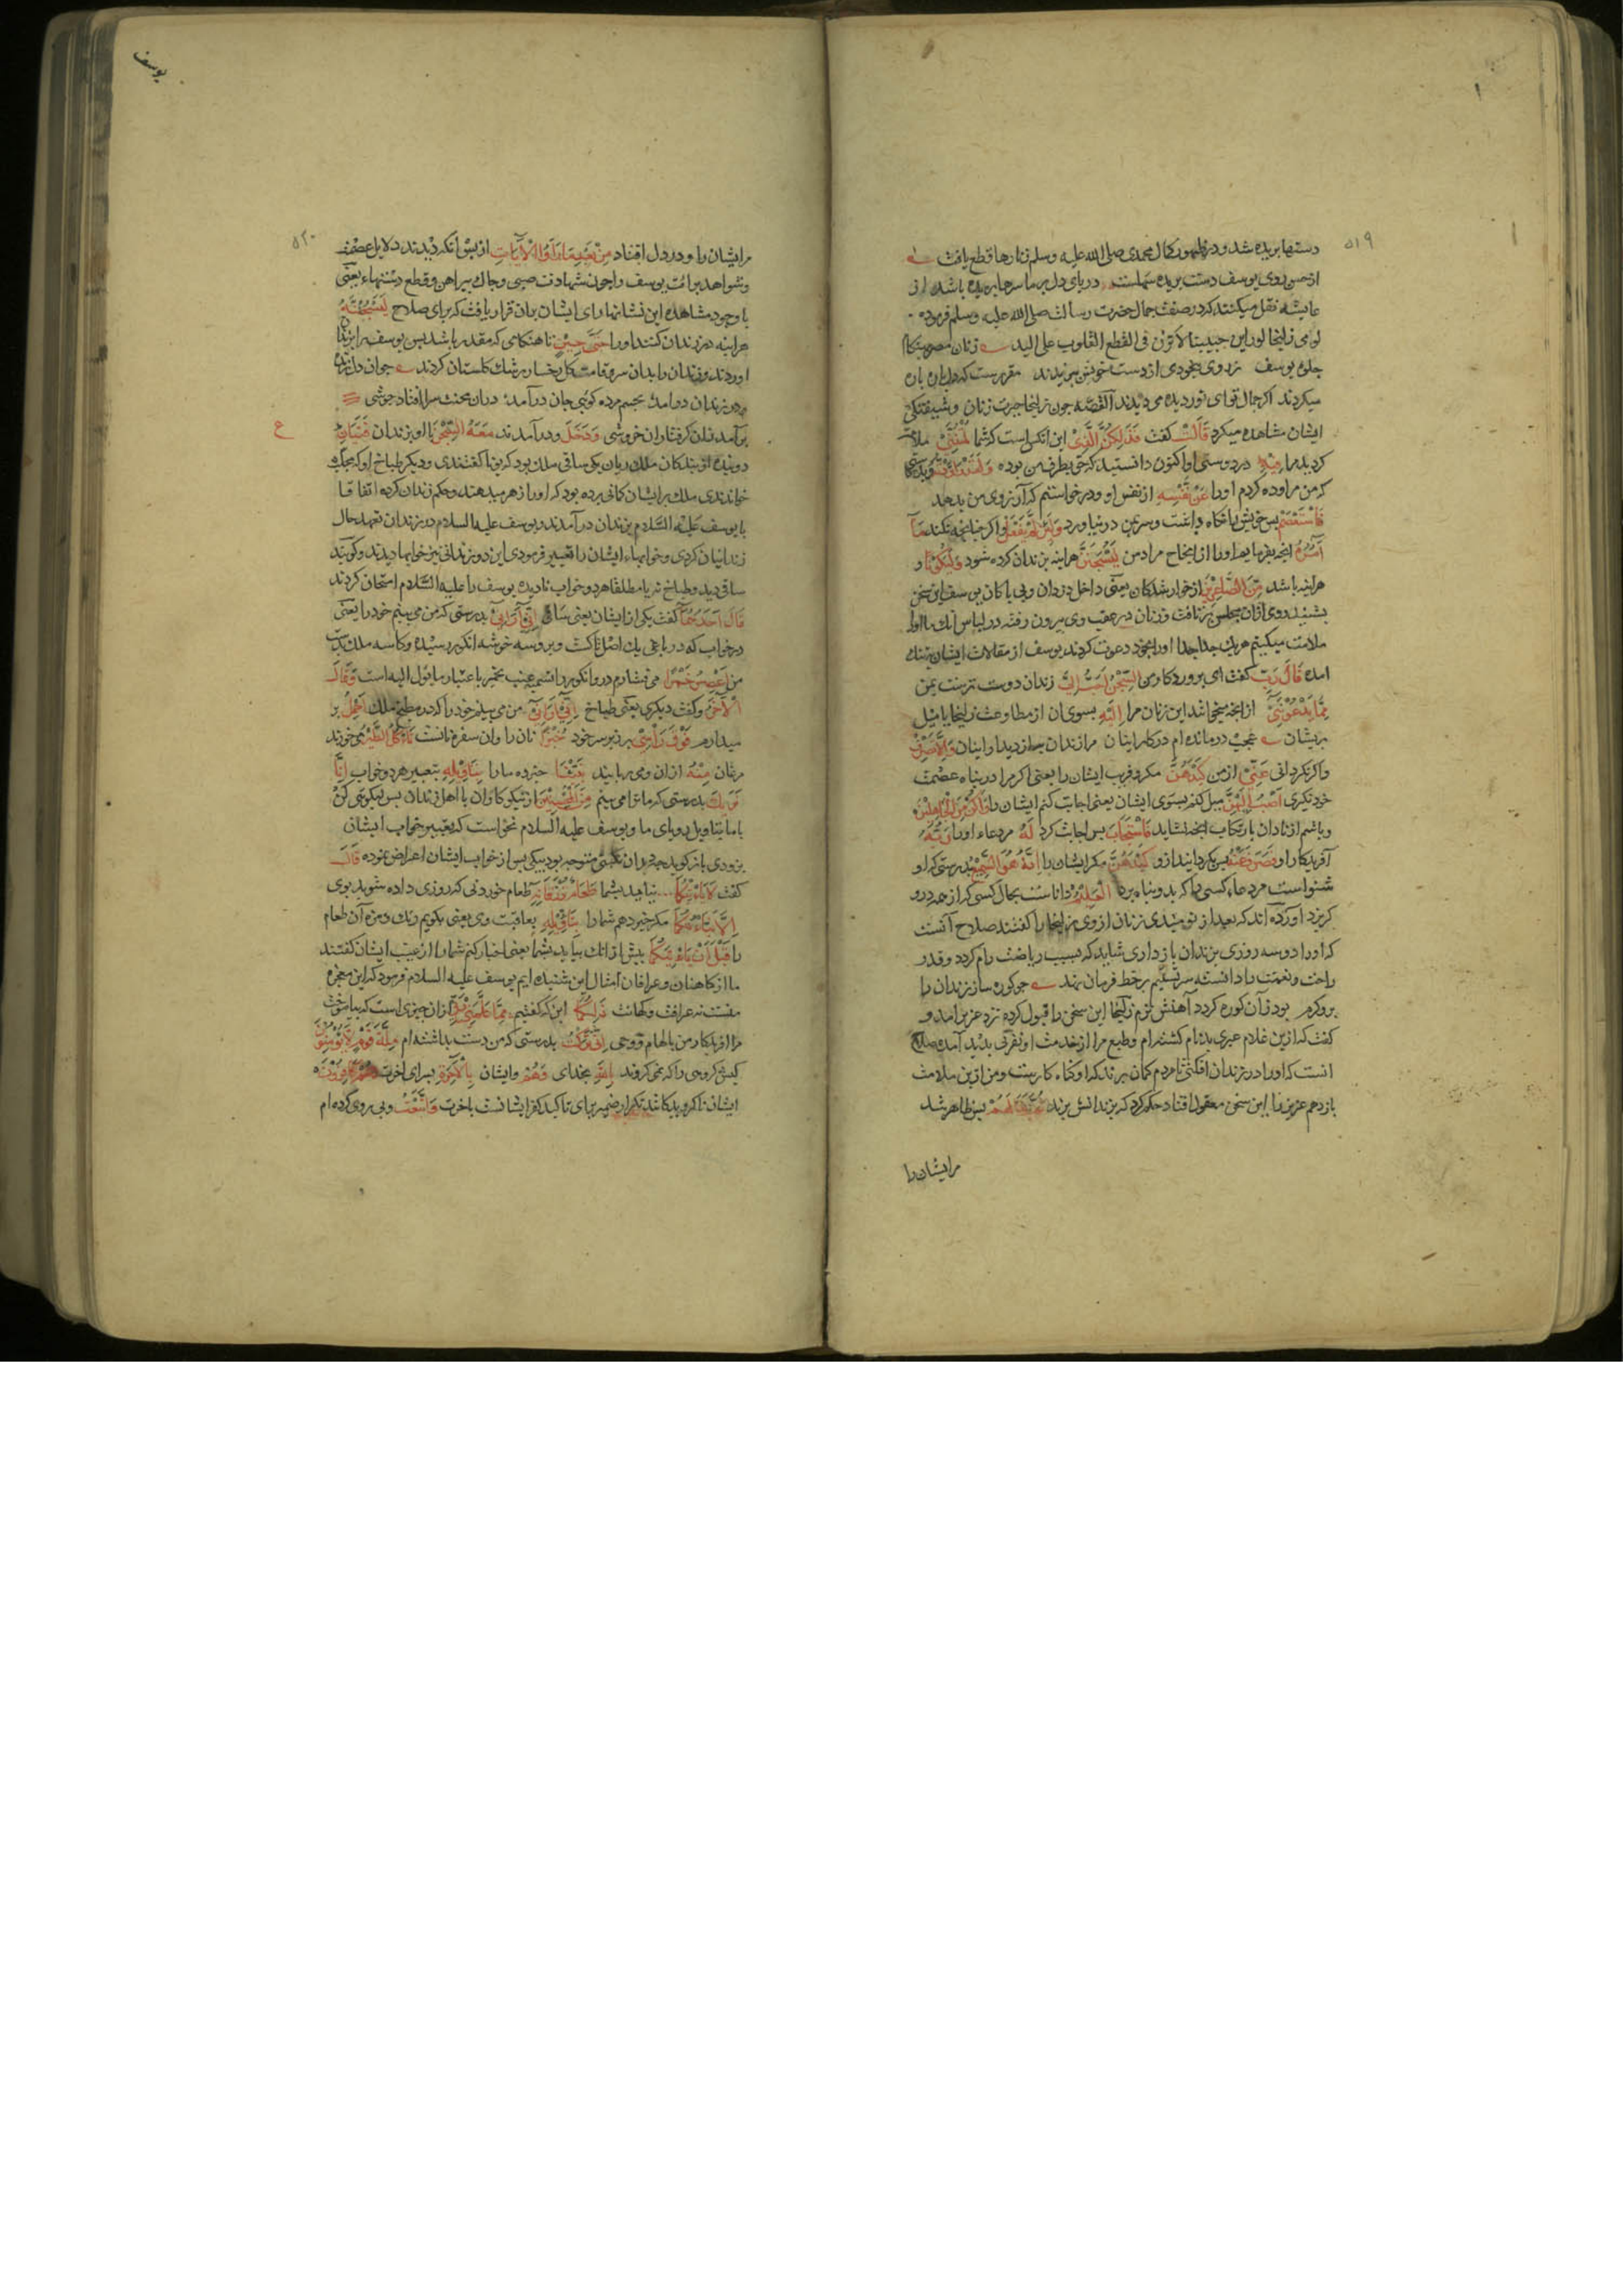 ۵۱۹
دستها بریده شد و در ظهور کمال محمدی صلی الله علیه وسلم زنارها قطع یافت
از حسن روی یوسف دست بریده سهلست در پای دل بر ما سرها بریده باشد از
عایشه نقل میکنند که در صفت جمال حضرت رسالت صلی الله علیه وسلم فرموده
لوامی زلیخا لو راین جبیبه لاثرن فی القطع القلوب علی الید زنان مصر بهنکام
جلوهٔ یوسف ز روی بیخودی از دست خویش ببریدند مقررست که دل پاره پاره
میکردند اگر جمال تو ای نور دیده می دیدند القصه چون زلیخا حیرت زنان و شیفتکی
ایشان مشاهده میکرد قَالَتْ گفت فَذَلِكُنَّ الَّذِی این انکس است که شما لُمْتُنَّنِی ملامت
کردید مرا فِیهِ در دوستی او اکنون دانستید که حق بطرف من بوده وَلَقَدْ رَاوَدْتُهُ و بدرستی
که من مراوده کردم او را عَنْ نَفْسِهِ از نفس او و درخواستم که آرزوی من بدهد
فَاسْتَعْصَمَ پس خویش را نگاه داشت و سر بمن در نیاورد وَلَئِنْ لَمْ یَفْعَلْ و اگر چنانچه نکند مَا
آمُرُهُ انچه بفرمایم او را از انجاح مراد من لَیُسْجَنَنَّ هراینه بزندان کرده شود وَلَیَكُونًا و
هراینه باشد مِنَ الصَّاغِرِینَ از خوار شدکان یعنی داخل دزدان و بی باکان یوسف این سخن
بشنید روی ازان مجلس برتافت و زنان در عقب وی بیرون رفته در لباس آنک ما او را
ملامت میکنیم هریک جدا جدا او را بخود دعوت کردند یوسف از مقالات ایشان بتنک
آمده قَالَ رَبِّ گفت ای پروردکار من السِّجْنُ أَحَبُّ إِلَیَّ زندان دوست ترست بمن
مِمَّا یَدْعُونَنِی از انچه میخوانند این زنان مرا إِلَیْهِ بسوی ان از مطاوعت زلیخا یا میل
بریشان عجب درمانده ام در کار اینان مرا زندان به از دیدار اینان وَإِلَّا تَصْرِفْ
و اگر نگردانی عَنِّی از من كَیْدَهُنَّ مکر و فریب ایشان را یعنی اگر مرا در پناه عصمت
خود نگیری أَصْبُ إِلَیْهِنَّ میل کنم بسوی ایشان یعنی اجابت کنم ایشان را وَأَكُنْ مِنَ الْجَاهِلِینَ
و باشم از نادان بارتکاب انچه نشاید فَاسْتَجَابَ پس اجابت کرد لَهُ مر دعاء او را رَبُّهُ
آفریدکار او فَصَرَفَ عَنْهُ پس بگردانید ازو كَیْدَهُنَّ مکر ایشان را إِنَّهُ هُوَ السَّمِیعُ بدرستی که او
شنواست مر دعاء کسی را که بدو پناه برد الْعَلِیمُ داناست بحال کسی که از همه درو
گریزد آورده اند که بعد از نومیدی زنان از وی مر زلیخا را گفتند صلاح آنست
که او را دو سه روزی بزندان باز داری شاید که بسبب ریاضت رام گردد و قدر
راحت و نعمت را دانسته سر تسلیم بر خط فرمان نهد چو کوره ساز زندان را
برو گرم بود زان کوره گردد آهنش نرم زلیخا این سخن را قبول کرده نزد عزیز آمد و
گفت که ازین غلام عبری بدنام گشته ام و طبع مرا از خدمت او نفرتی پدید آمده صلاح
انست که او را در زندان افکنی تا مردم کمان برند که او گناه کارست و من ازین ملامت
باز رهم عزیز را این سخن معقول افتاد حکم کرد که بزندانش برند ثُمَّ بَدَا لَهُمْ پس ظاهر شد
مر ایشان را
یوسف
۵۲۰
مر ایشان را و در دل افتاد مِنْ بَعْدِ مَا رَأَوُا الْآیَاتِ از پس آنکه دیدند دلایل عصمت
و شواهد براءت یوسف را چون شهادت صبی و چاک پیراهن و قطع دستهاء یعنی
با وجود مشاهده این نشانها رای ایشان بران قرار یافت که برای صلاح لَیَسْجُنُنَّهُ
هراینه در زندان کنند او را حَتَّی حِینٍ تا هنکامی که مقدر باشد پس یوسف را بزندان
آوردند و زندان را بدان سرو قامت گل رخسار رشک گلستان کردند چو آن دل زنده
در زندان درآمد بجسم مرده گویی جان درآمد دران محنت سرا افتاد جوشی
برآمد زان گرفتاران خروشی وَدَخَلَ و درآمدند مَعَهُ السِّجْنَ با او بزندان فَتَیَانِ
دو بنده از بندکان ملک ریان یکی ساقی ملک بود که یونا گفتندی و دیگر طباخ او که مجلب
خواندندی ملک بر ایشان گمانی برده بود که او را زهر میدهند و حکم زندان کرده اتفاقا
با یوسف عَلَیْهِ السَّلام بزندان درآمدند و یوسف علیه السلام در زندان تعهد حال
زندانیان کردی و خوابهاء ایشان را تعبیر فرمودی این دو زندانی نیز خوابها دیدند و گویند
ساقی دید و طباخ نه یا مطلقا هردو خواب نادیده یوسف را علیه السَّلام امتحان کردند
قَالَ أَحَدُهُمَا گفت یکی از ایشان یعنی ساقی إِنِّی أَرَانِی بدرستی که من می بینم خود را یعنی
در خواب که در باغی یک اصل تاکست و برو سه خوشه انگور رسیده و کاسه ملک بدست
من أَعْصِرُ خَمْرًا می فشارم درو انگور را تسمیه عنب بخمر باعتبار ما یؤل الیه است وَقَالَ
الْآخَرُ و گفت دیگری یعنی طباخ إِنِّی أَرَانِی من می بینم خود را که در مطبخ ملک أَحْمِلُ بر
میدارم فَوْقَ رَأْسِی بر زبر سر خود خُبْزًا نان را و ان سفره نانست تَأْكُلُ الطَّیْرُ می خورند
مرغان مِنْهُ ازان و می ربایند نَبِّئْنَا خبر ده ما را بِتَأْوِیلِهِ بتعبیر هر دو خواب إِنَّا
نَرَاكَ بدرستی که ما ترا می بینم مِنَ الْمُحْسِنِینَ از نیکوکاران با اهل زندان پس نیکویی کن
با ما بتاویل رویای ما و یوسف علیه السلام نخواست که تعبیر خواب ایشان
بزودی بازگوید چه دران محنتی متوجه بود بیکی پس از خواب ایشان اعراض نموده قَالَ
گفت لَا یَأْتِیكُمَا نیاید بشما طَعَامٌ تُرْزَقَانِهِ طعام خوردنی که روزی داده شوید بوی
إِلَّا نَبَّأْتُكُمَا مگر خبر دهم شما را بِتَأْوِیلِهِ بعاقبت وی یعنی بگویم رنک و مزه آن طعام
را قَبْلَ أَنْ یَأْتِیَكُمَا پیش از انک بیاید بشما یعنی اخبار کنم شما را از غیب ایشان گفتند
ما از کاهنان و عرافان امثال این شنیده ایم یوسف علیه السلام فرمود که این معجزه
منست نه عرافت و کهانت ذَلِكُمَا این که گفتیم مِمَّا عَلَّمَنِی رَبِّی ازان چیزی است که بیاموخت
مرا افریدکار من بالهام و وحی إِنِّی تَرَكْتُ بدرستی که من دست بداشته ام مِلَّةَ قَوْمٍ لَا یُؤْمِنُونَ
کیش گروهی را که نمی گروند بِاللَّهِ بخدای وَهُمْ و ایشان بِالْآخِرَةِ بسرای اخرت هُمْ كَافِرُونَ
ایشان ناگرویدگانند تکرار ضمیر برای تاکید کفر ایشانست باخرت وَاتَّبَعْتُ و پی روی کرده ام